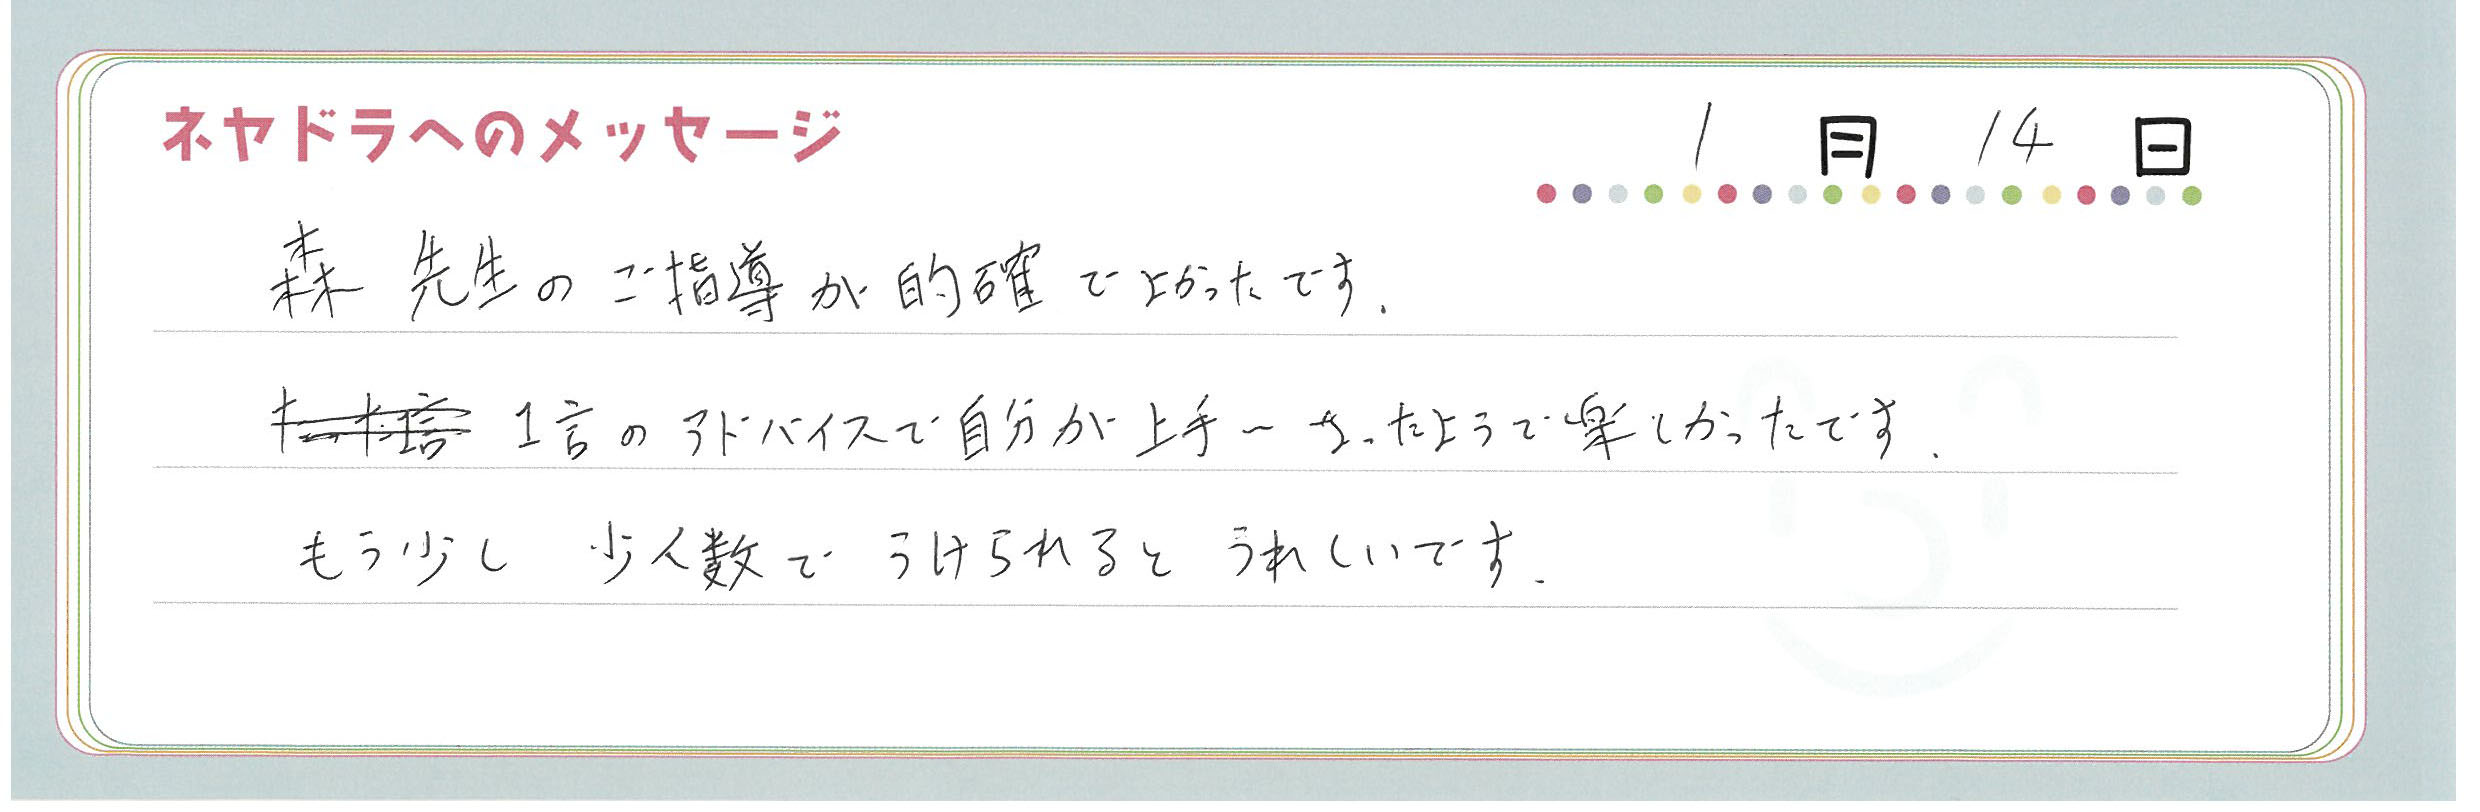 ネヤドラへのメッセージ
1月14日
森先生のご指導が的確でよかったです.
1言のアドバイスで自分が上手くなったようで楽しかったです.
もう少し 少人数で うけられると うれしいです.